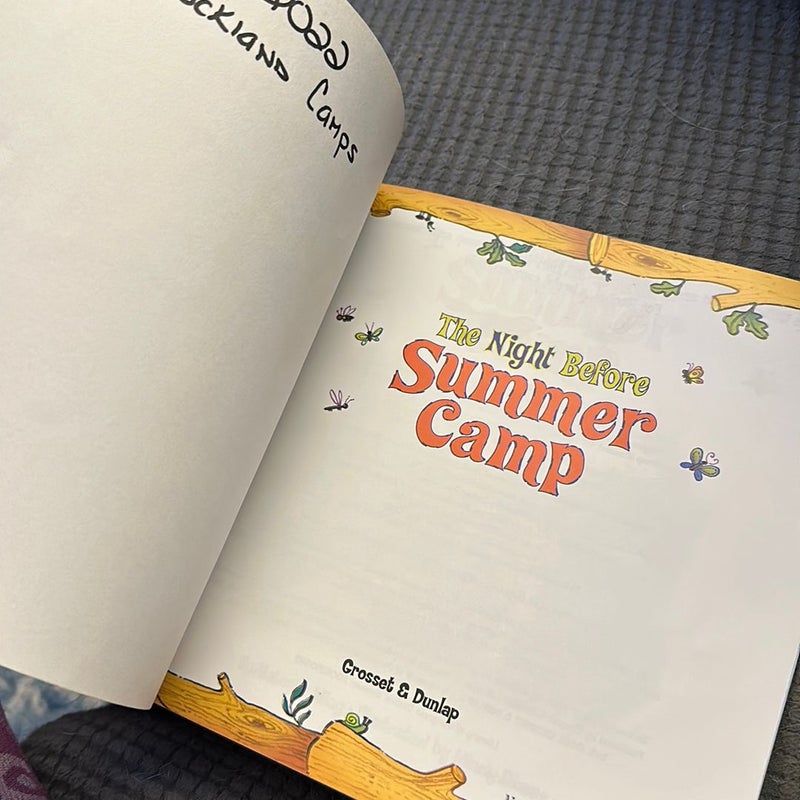 2022
Camps
The Night Before
Summer
Camp
Grosset & Dunlap